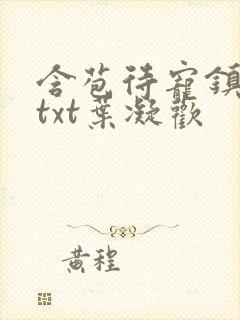 含苞待寵鎮
txt葉凝歡
黃程